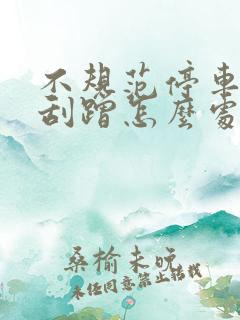 不规范停車
刮蹭怎麽處
桑榆未晚
未经同意禁止转载